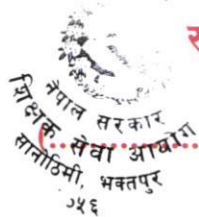 नेपाल सरकार
शिक्षक सेवा आयोग
सानोठिमी, भक्तपुर